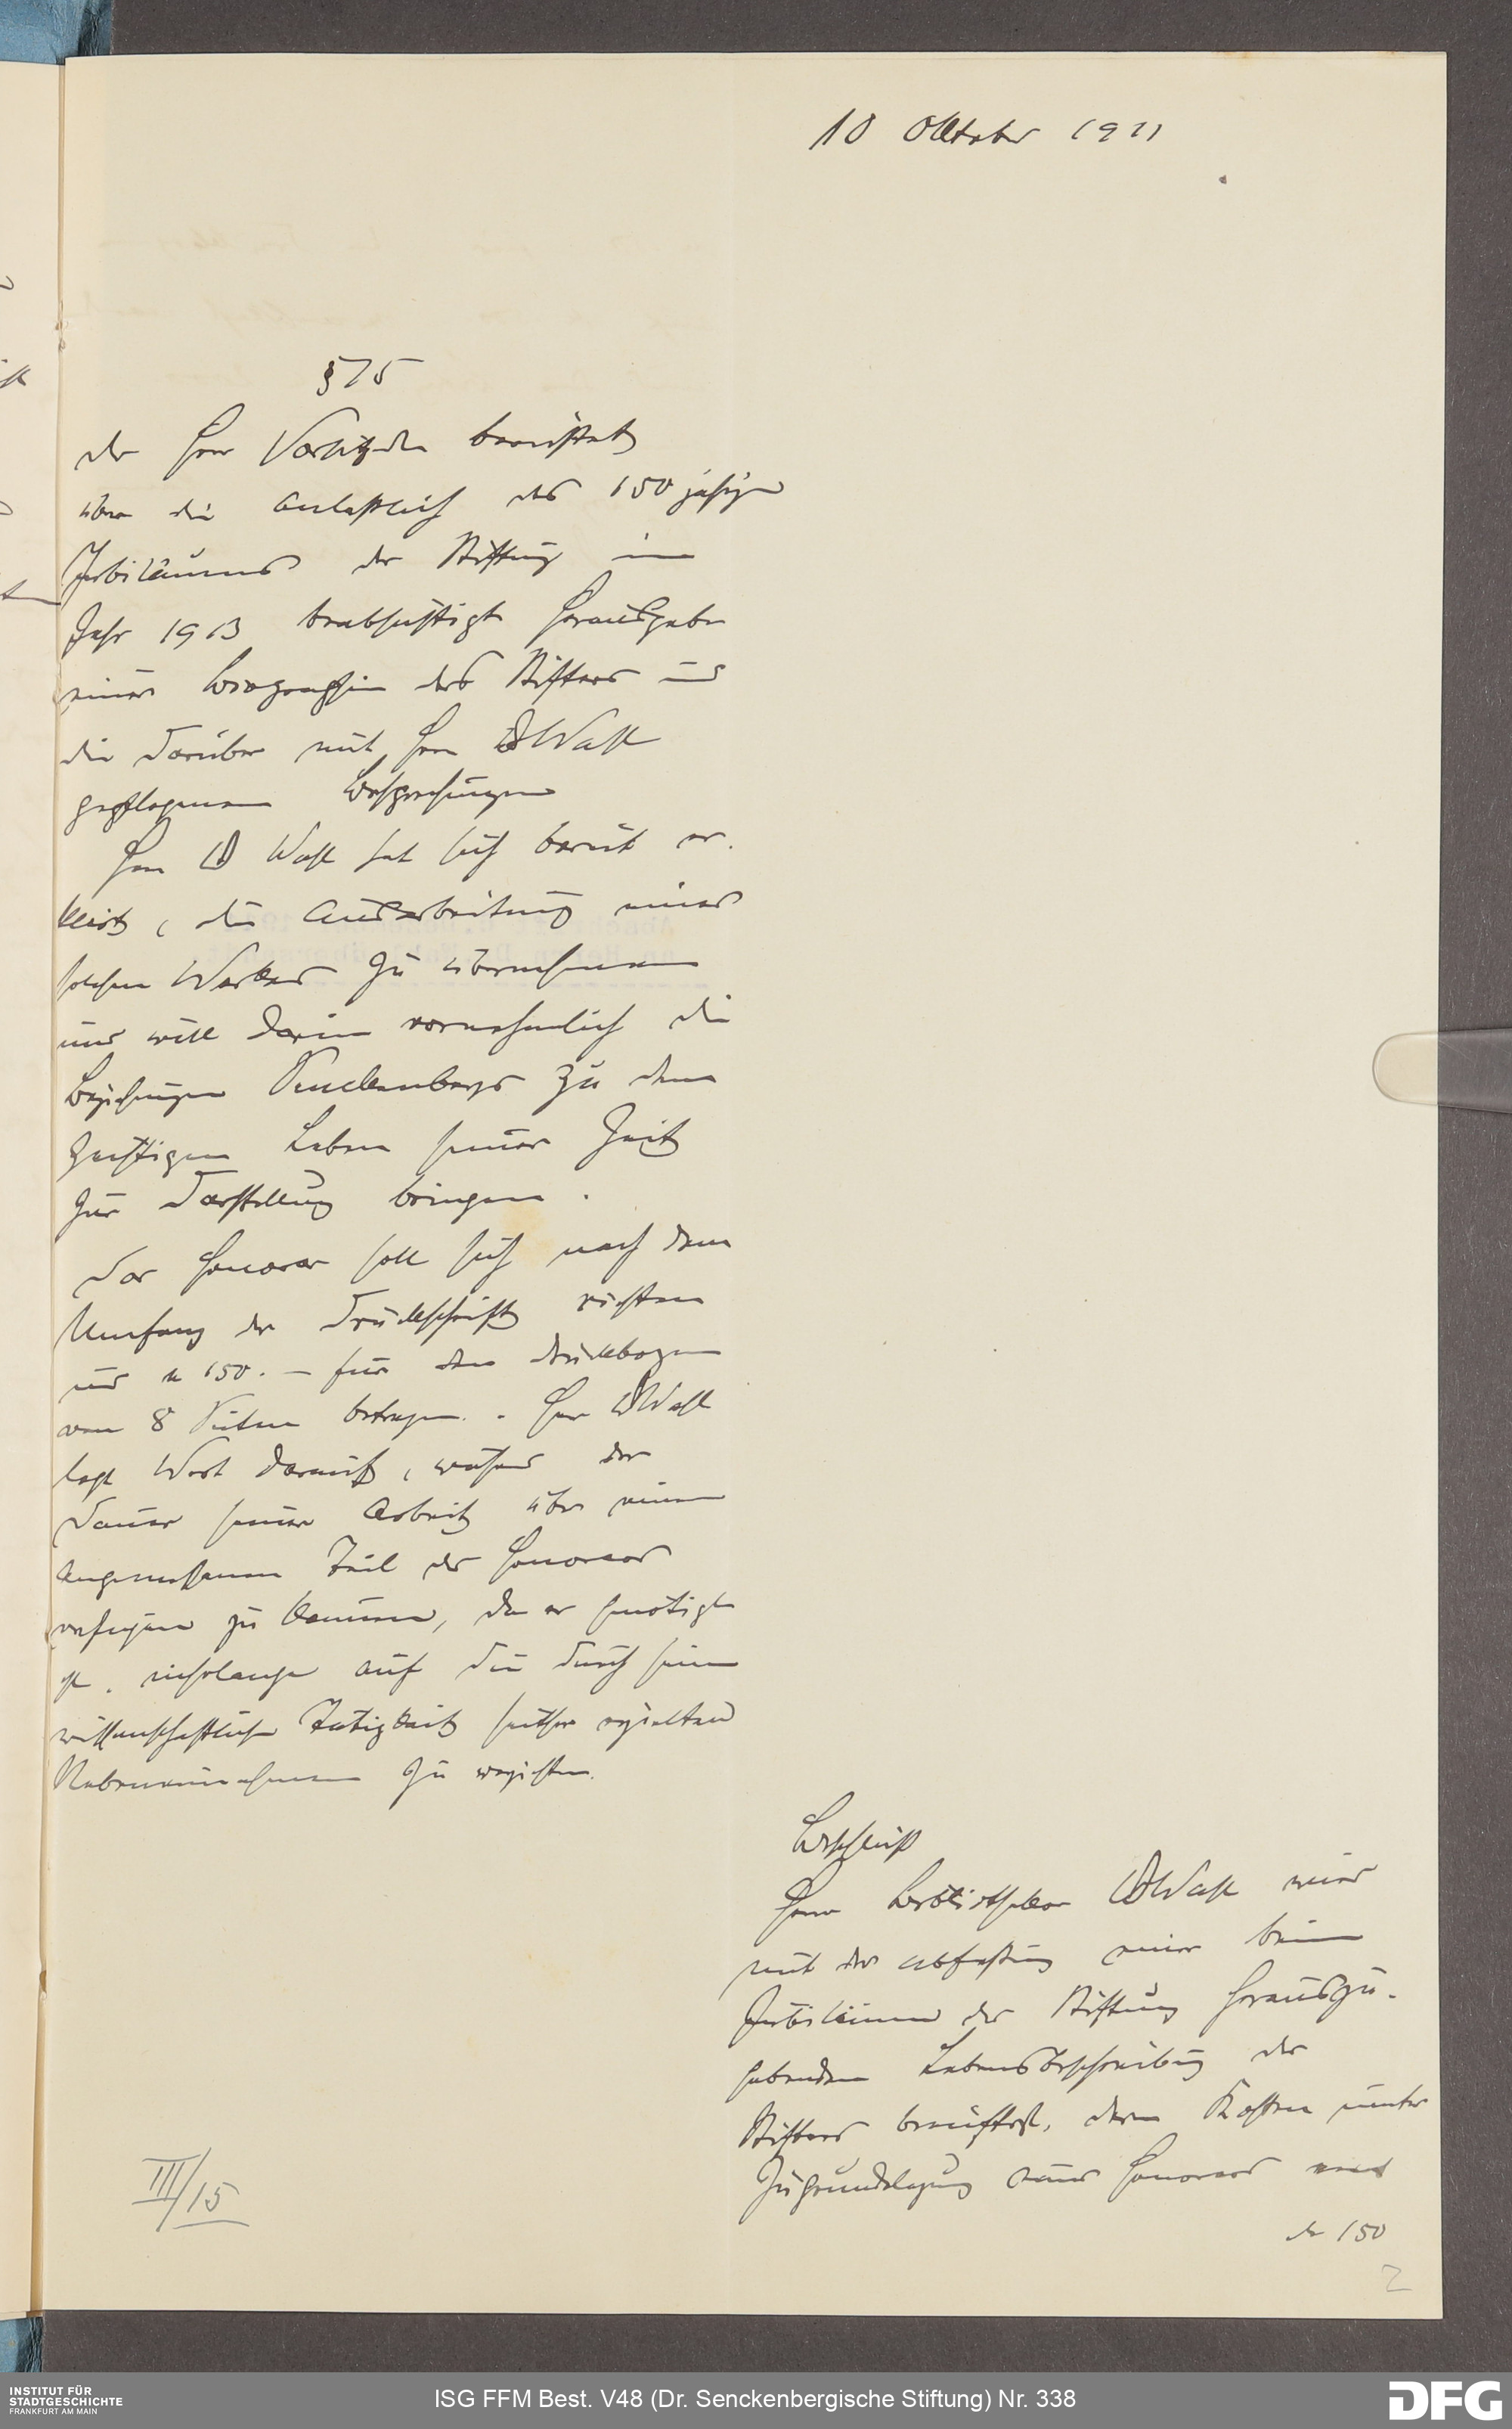 10 Oktober 1911
§ 75
Der Herr Vorsitzende berichtet
über die anlässlich des 150 jährigen
Jubiläums der Stiftung im
Jahr 1913 beabsichtigte Herausgabe
einer Biographie des Stifters und
die darüber mit Herrn Dr Wahl
gepflogenen Besprechungen
Herr Dr Wahl hat sich bereit er-
klärt, die Ausarbeitung eines
solchen Werkes zu übernehmen
und will darin vornehmlich die
Beziehungen Senckenbergs zu dem
geistigen Leben seiner Zeit
zur Darstellung bringen.
Das Honorar soll sich nach dem
Umfang der Druckschrift richten
und M 150.- für den Druckbogen
von 8 Seiten betragen. - Herr Dr Wahl
legt Wert darauf, während der
Dauer seiner Arbeit über einen
angemessenen Teil des Honorars
verfügen zu können, da er genötigt
ist, auf die durch seine
wissenschaftliche Tätigkeit seither erzielten
Nebeneinnahmen zu verzichten.
Beschluß
Herr Bibliothekar Dr Wahl wird
mit der Abfassung einer beim
Jubiläum der Stiftung herauszu-
gebenden Lebensbeschreibung des
Stifters beauftragt, deren Kosten unter
Zugrundelegung eines Honorars von
M 150
III/15
2
INSTITUT FÜR
STADTGESCHICHTE
FRANKFURT AM MAIN
ISG FFM Best. V48 (Dr. Senckenbergische Stiftung) Nr. 338
DFG